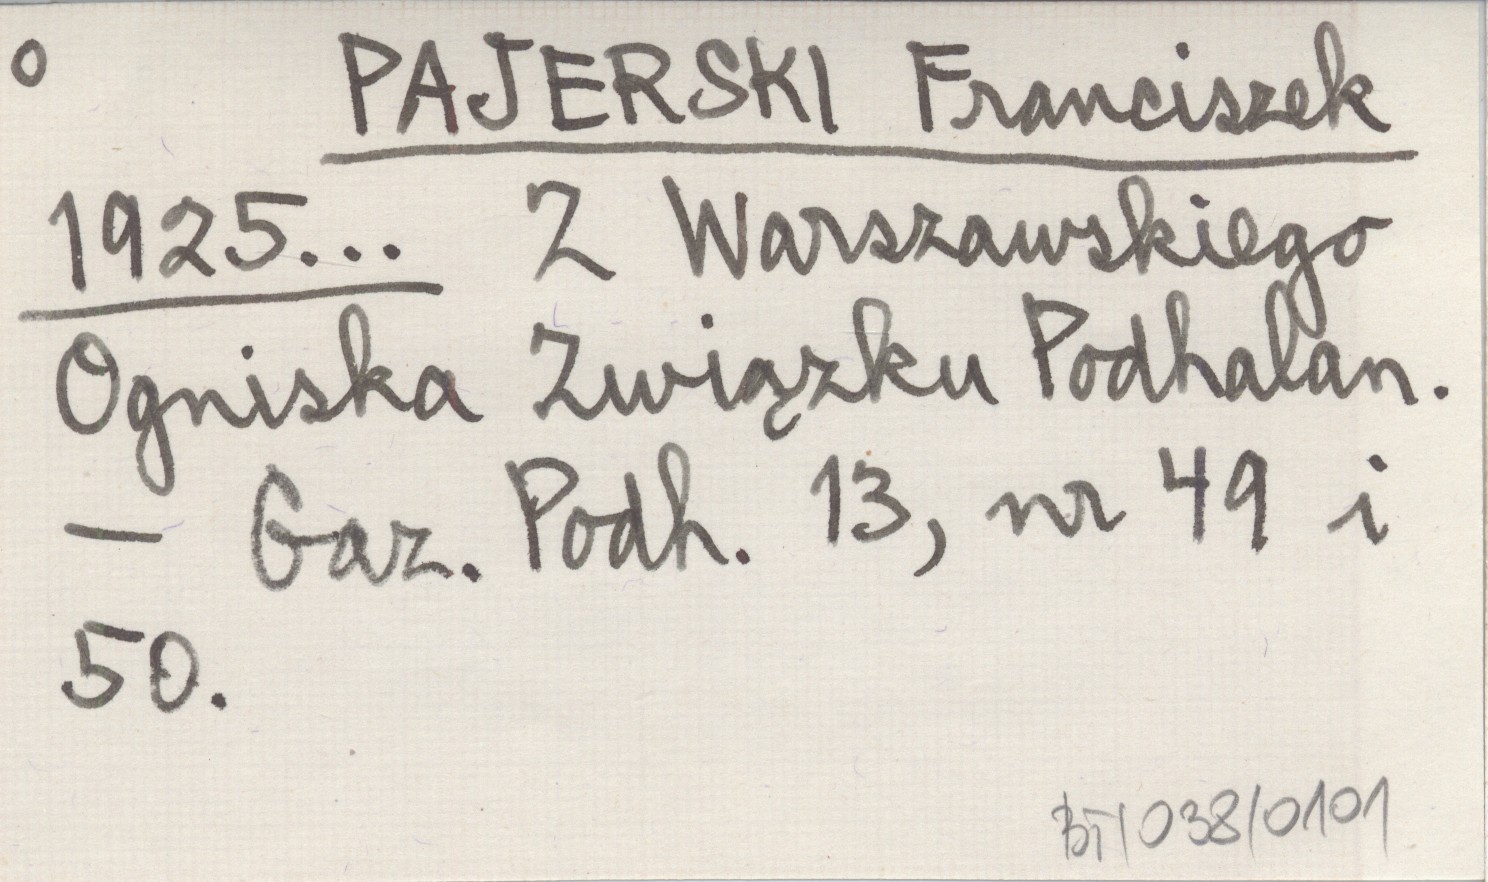 o PAJERSKI Franciszek
1925... Z Warszawskiego
Ogniska Związku Podhalan.
— Gaz. Podh. 13, nr 49 i
50.
BT/038/0101